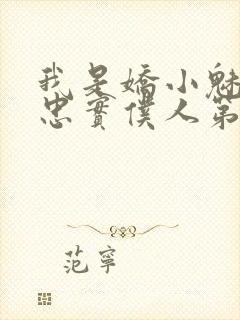 我是嬌小魅
忠實僕人第
范寧